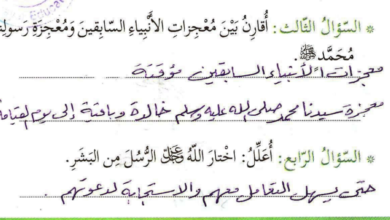 * السّؤال الثّالث: أُقارِنُ بَيْنَ مُعْجِزاتِ الأَنْبِياءِ السّابِقينَ وَمُعْجِزَةِ رَسولِنا
مُحَمَّدٍ ﷺ.
معجزات الأنبياء السابقين مؤقتة
معجزة سيدنا محمد صلى الله عليه وسلم خالدة وباقية إلى يوم القيامة
* السّؤال الرّابع: أُعَلِّلُ: اخْتارَ اللهُ ﷻ الرُّسُلَ مِنَ البَشَرِ.
حتى يسهل التعامل معهم والاستجابة لدعوتهم